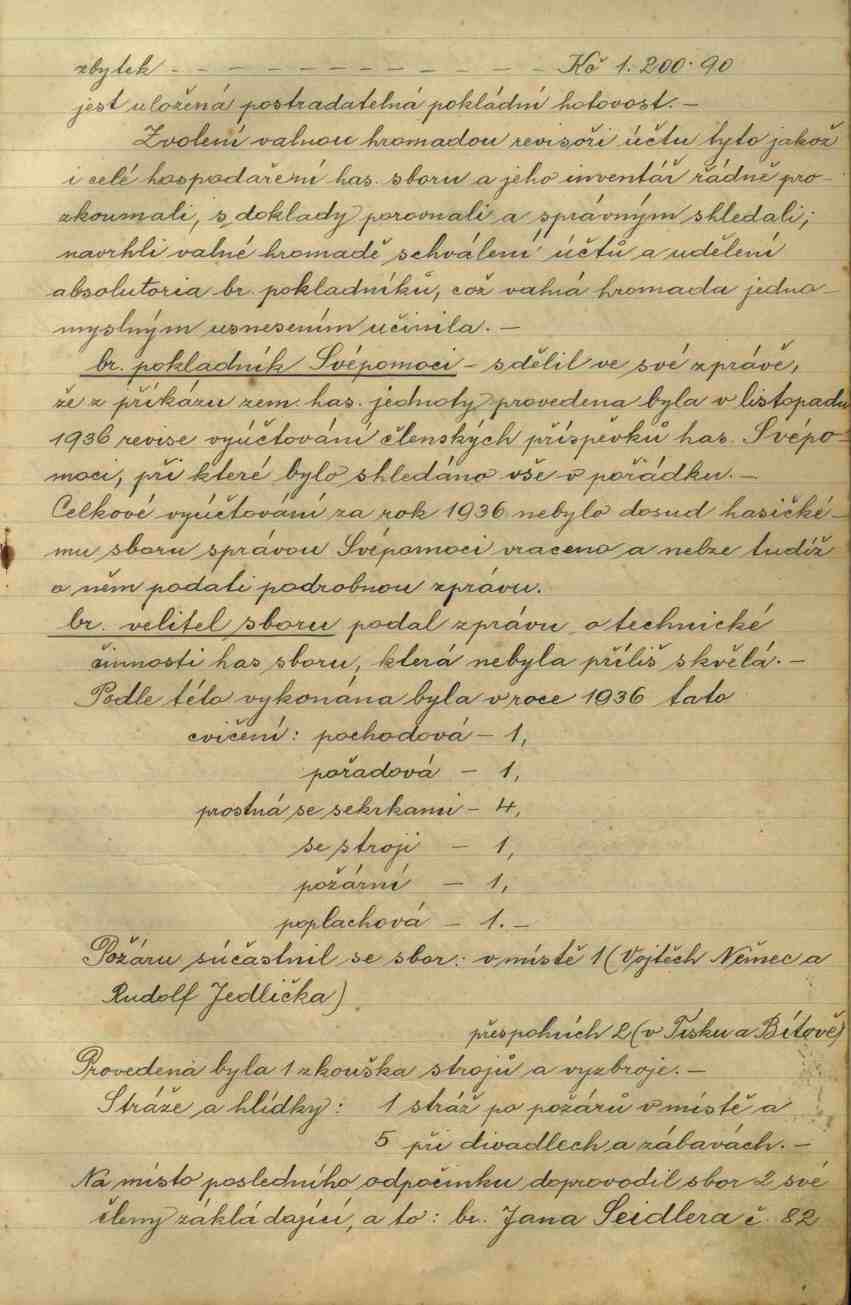 zbytek - - - - - - - - - - - - - - Kč 1.200·90
jest uložená postradatelná pokládní hotovost. –
Zvolení valnou hromadou revisoři účtu tyto jakož
i celé hospodaření has. sboru a jeho inventář řádně pro-
zkoumali, s doklady porovnali a správným shledali;
navrhli valné hromadě schválení účtů a udělení
absolutoria br. pokladníků, což valná hromada jedno-
myslným usnesením učinila. –
br. pokladník Svépomoci – sdělil ve své zprávě,
že z příkázu zem. has. jednoty provedena byla v listopadu
1936 revise vyúčtování členských příspěvků has. Svépo-
moci, při které bylo shledáno vše v pořádku. –
Celkové vyúčtování za rok 1936 nebylo dosud hasičké-
mu sboru správou Svépomoci vraceno a nelze tudíž
o něm podati podrobnou zprávu.
br. velitel sboru podal zprávu o technické
činnosti has. sboru, která nebyla příliš skvělá. –
Podle této vykonána byla v roce 1936 tato
cvičení: pochodová – 1,
pořadová – 1,
prostná se sekrkami – 4,
se stroji – 1,
požární – 1,
poplachová – 1. –
Požáru súčastnil se sbor: v místě 1 (Vojtěch Němec a
Rudolf Jedlička)
přespolních 2 (v Tísku a Bítově)
Provedena byla 1 zkouška strojů a vyzbroje. –
Stráže a hlídky: 1 stráž po požárů v místě a
5 při divadlech a zábavách. –
Na místo posledního odpočinku doprovodil sbor 2 své
členy zákládající, a to: br. Jana Seidlera č. 82